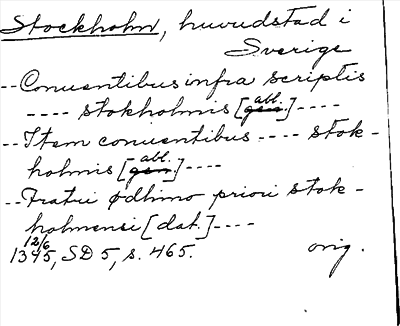 Stockholm, huvudstad i
Sverige
-- Conuentibus infra scriptis
---- stokholmis [abl.] ----
-- Item conuentibus ---- stok-
holmis [abl.] ----
-- Fratri ødhmo priori stok-
holmensi [dat.] ----
12/6
1345, SD 5, s. 465. orig.